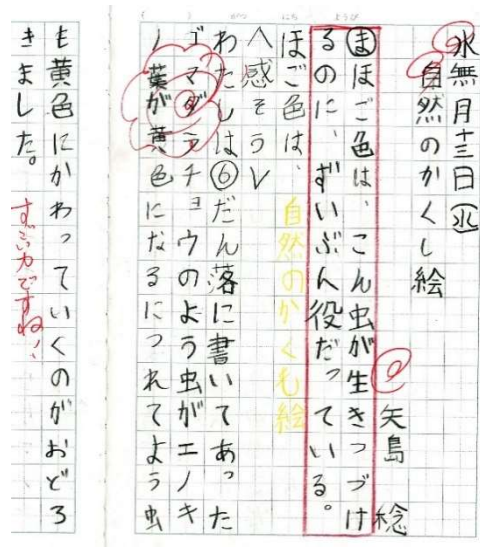 水無月十三日(水)
自然のかくし絵
矢島 稔
まほご色は、こん虫が生きつづけ
るのに、ずいぶん役だっている。
ほご色は、自然のかくし絵
＜感そう＞
わたしは⑥だん落に書いてあった
ゴマダラチョウのよう虫がエノキ
ノ葉が黄色になるにつれてよう虫
も黄色にかわっていくのがおどろ
きました。すごい力ですね!